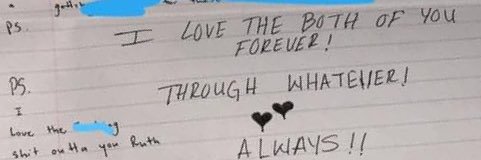 PS. I LOVE THE BOTH OF YOU
FOREVER!
PS. THROUGH WHATEVER!
I
Love the
shit outta you Ruth
ALWAYS!!